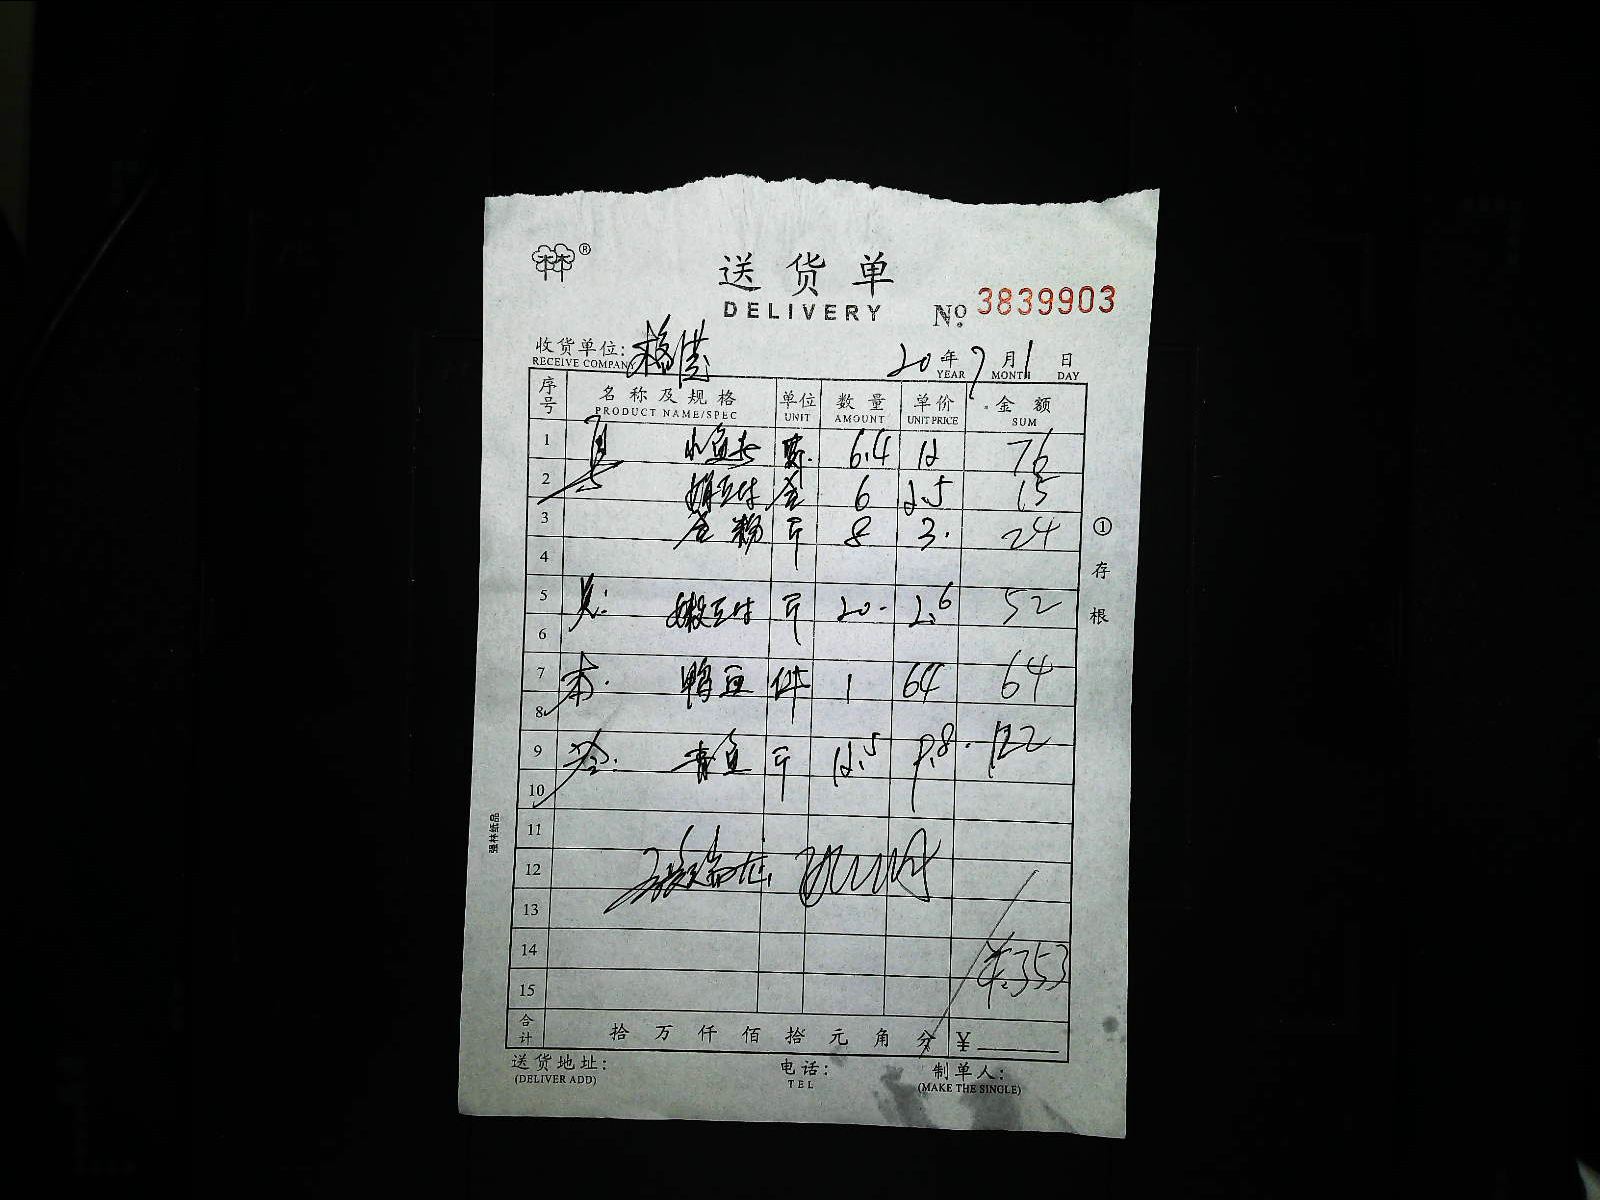 ®
送货单
DELIVERY
№ 3839903
收货单位:
RECEIVE COMPANY
20 年 7 月 1 日
YEAR MONTH DAY
序号 名称及规格 单位 数量 单价 金额
PRODUCT NAME/SPEC UNIT AMOUNT UNIT PRICE SUM
1 6.4 12 76
2 盒 6 2.5 15
3 粉 斤 8 3. 24
4
5 嫩豆付 斤 20 2.6 52
6
7 鸭血 件 1 64 64
8
9 青鱼 斤 12.5 9.8 122
10
11
12
13
14 ¥353
15
合计 拾 万 仟 佰 拾 元 角 分 ¥
送货地址:
(DELIVER ADD)
电话:
TEL
制单人:
(MAKE THE SINGLE)
①存根
强林纸品